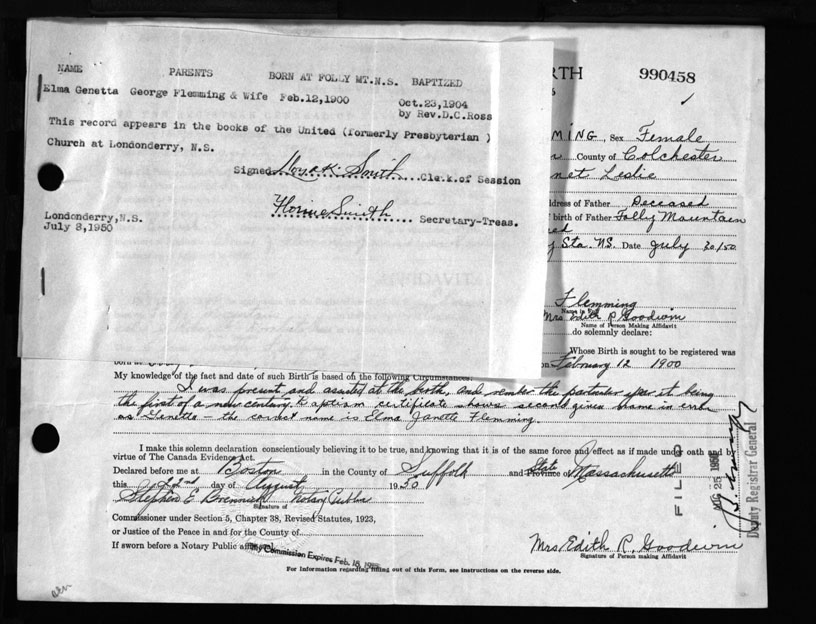 NAME PARENTS BORN AT FOLLY MT.N.S. BAPTIZED
Elma Genetta George Flemming & Wife Feb.12,1900 Oct.23,1904
by Rev.D.C.Ross
This record appears in the books of the United (formerly Presbyterian )
Church at Londonderry, N.S.
Signed Smith Clerk.of Session
Florine Smith Secretary-Treas.
Londonderry,N.S.
July 3,1950
RTH 990458
MING, Sex Female
County of Colchester
net Leslie
ddress of Father Deceased
birth of Father Folly Mountain
ed
Sta. NS. Date July 30/50
Flemming
Name in Full
Mrs Edith R. Goodwin
Name of Person Making Affidavit
do solemnly declare:
Whose Birth is sought to be registered was
on February 12 1900
born at
My knowledge of the fact and date of such Birth is based on the following Circumstances:
I was present and assisted at the birth, and rember the particular year it being
the first of a new century. Baptism certificate shows second given name in error
as Genetta — the correct name is Elma Janette Flemming.
I make this solemn declaration conscientiously believing it to be true, and knowing that it is of the same force and effect as if made under oath and by
virtue of The Canada Evidence Act.
Declared before me at Boston in the County of Suffolk and Province State Massachusetts
this 22nd day of August 1950
Stephen E Brennan Notary Public
Signature of
Commissioner under Section 5, Chapter 38, Revised Statutes, 1923,
or Justice of the Peace in and for the County of
If sworn before a Notary Public affix
My Commission Expires Feb. 18,
Mrs. Edith R. Goodwin
Signature of Person making Affidavit
For Information regarding filling out of this Form, see instructions on the reverse side.
FILED
AUG 25 1950
Deputy Registrar General